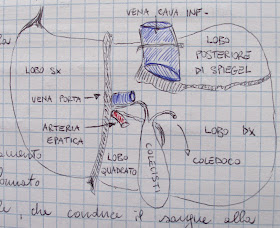 VENA CAVA INF.
LOBO
POSTERIORE
DI SPIEGEL
LOBO SX
VENA PORTA
ARTERIA
EPATICA
LOBO
QUADRATO
COLECISTI
LOBO DX
COLEDOCO
che conduce il sangue alla